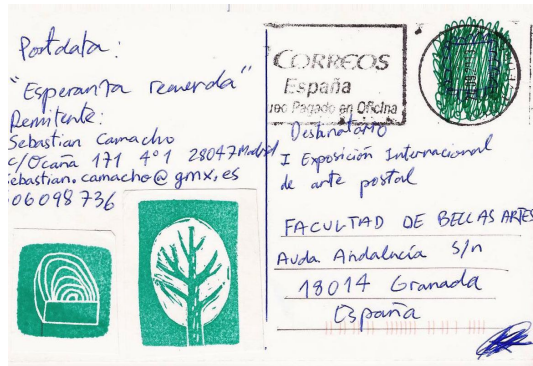 Postdata:
"Esperanta recuerda"
Remitente:
Sebastian Camacho
C/Ocaña 171 4º1 28047 Madrid
sebastian.camacho@gmx.es
606098736
CORREOS
España
Pagado en Oficina
Destinatario
I Exposición Internacional
de arte postal
FACULTAD DE BELLAS ARTES
Avda. Andalucía S/n
18014 Granada
España